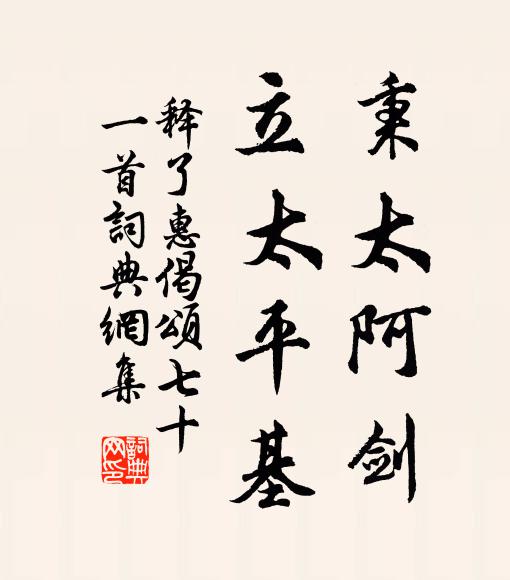 秉太阿剑
立太平基
释了惠偈頌七十
一首詞典網集
詞典网印